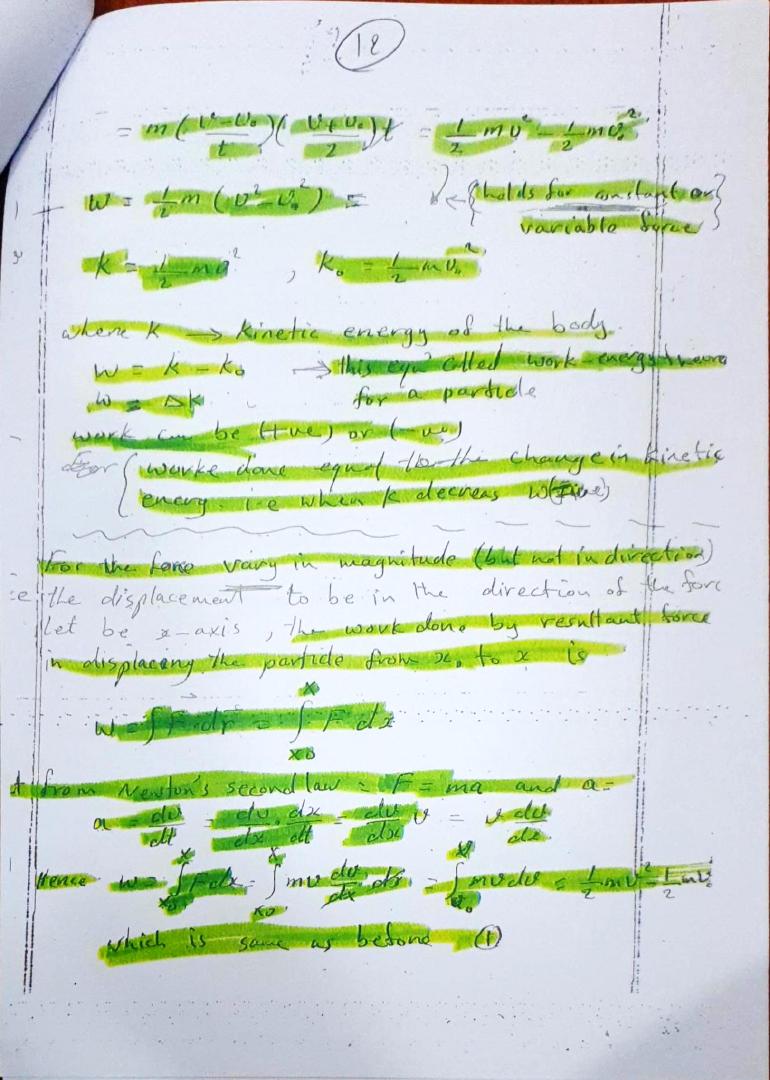 12
= m ( v - v₀ / t ) ( v + v₀ / 2 ) t = 1/2 m v² - 1/2 m v₀²
W = 1/2 m ( v² - v₀² ) = ← { holds for constant or
variable force }
K = 1/2 m v² , K₀ = 1/2 m v₀²
where K → Kinetic energy of the body.
W = K - K₀ → this equⁿ called work-energy
W = ΔK for a particle
work can be (+ve) or (-ve)
{ worke done equal to the change in Kinetic
energy. i.e when K decreas W
For the force vary in magnitude (but not in direction)
the displacement to be in the direction of the forc
Let be x-axis, the work done by resultant force
in displacing the particle from x₀ to x is
W = ∫ F. dr = ∫ₓ₀ˣ F dx
from Newton's second law = F = ma and a =
a = dv/dt = dv/dx . dx/dt = dv/dx v = v dv/dx
Hence W = ∫ₓ₀ˣ F dx = ∫ₓ₀ˣ m v dv/dx dx = ∫ᵥ₀ᵛ m v dv = 1/2 m v² - 1/2 m v₀²
which is same as before ①